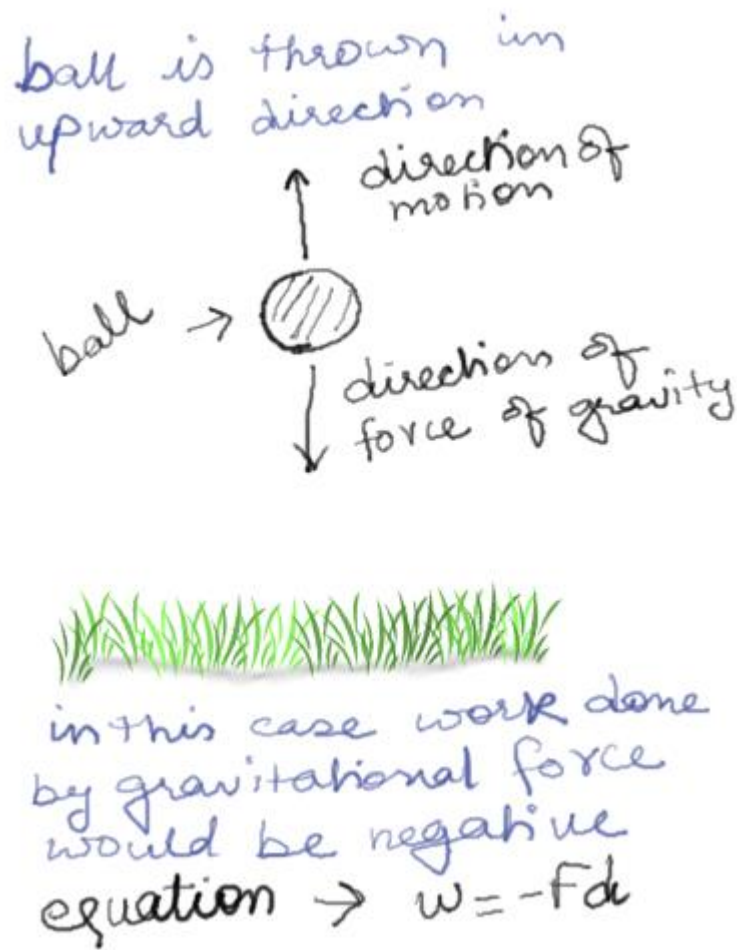 ball is thrown in
upward direction
direction of
motion
ball →
direction of
force of gravity
in this case work done
by gravitational force
would be negative
equation → w = -Fd